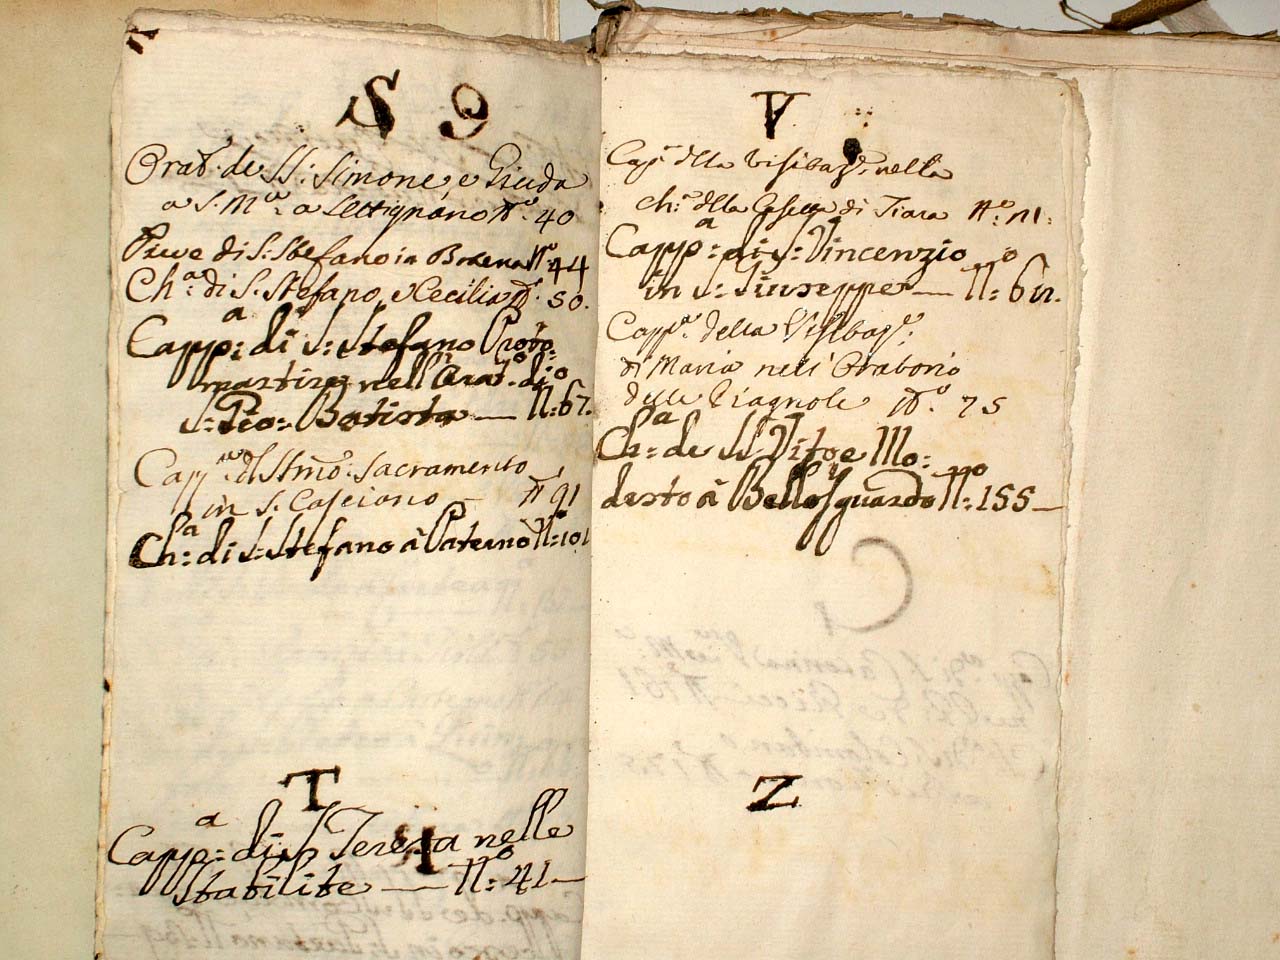 S 9
Orat.º de SS: Simone, e Giuda
a S. M.ª a Settignano N.º 40
Pieve di S: Stefano in N.º 44
Ch.ª di S. Stefano, e Cecilia N.º 50.
Capp.ª di S: Stefano Proto=
martire nell'Orat.º di
S: Gio: Batista — N.º 67.
Capp.ª del SS.mo Sacramento
in S. Casciano — N 91
Ch.ª di S: Stefano à Paterno N.º 101
T
Capp.ª di S Teresa nelle
Stabilite — N.º 41 —
V
Cap.ª della Visitaz.e nella
Ch.ª della di N.º
Capp.ª di S: Vincenzio
in S: Giuseppe — N.º
Capp.ª della Visitaz.e
di Maria nell'Oratorio
delle N.º 75
Ch.ª de SS Vito e Mo=
desto à Bellosguardo N.º 155 —
Z